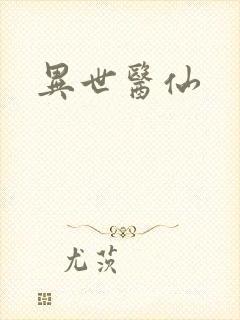 異世醫仙
尤茨